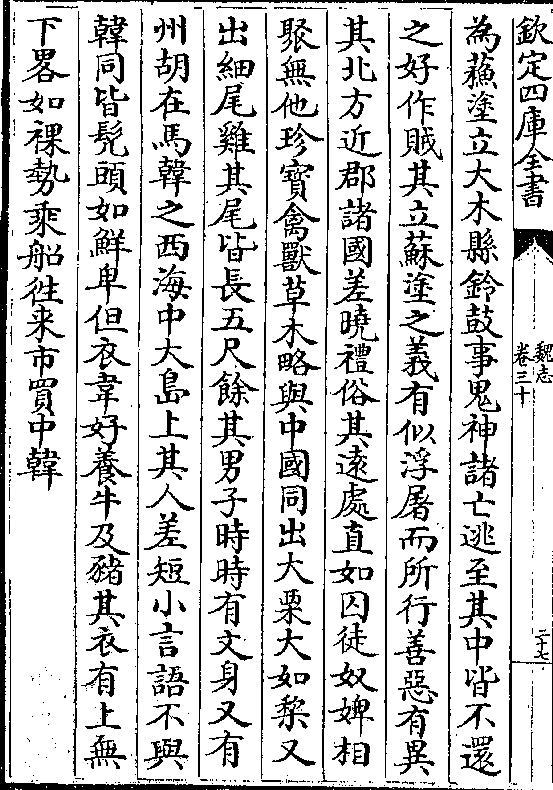 欽定四庫全書
魏志
卷三十
二十七
為蘓塗立大木縣鈴鼓事鬼神諸亡逃至其中皆不還
之好作賊其立蘇塗之義有似浮屠而所行善惡有異
其北方近郡諸國差曉禮俗其遠處直如囚徒奴婢相
聚無他珍寶禽獸草木略與中國同出大栗大如棃又
出細尾雞其尾皆長五尺餘其男子時時有文身又有
州胡在馬韓之西海中大島上其人差短小言語不與
韓同皆髠頭如鮮卑但衣韋好養牛及豬其衣有上無
下畧如裸勢乘船徃来市買中韓